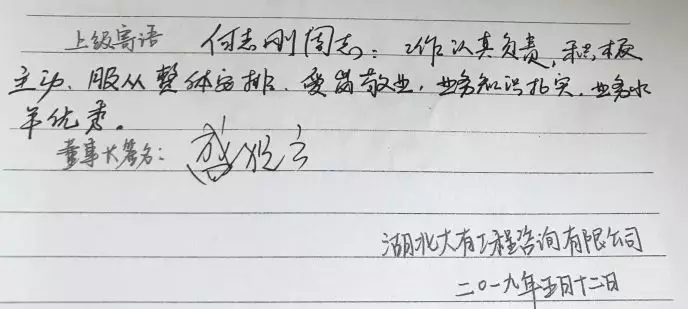 上级寄语 何志刚同志：工作认真负责，积极
主动、服从整体安排、爱岗敬业，业务知识扎实、业务水
平优秀。
董事长签名：
湖北大有工程咨询有限公司
二〇一九年五月十二日